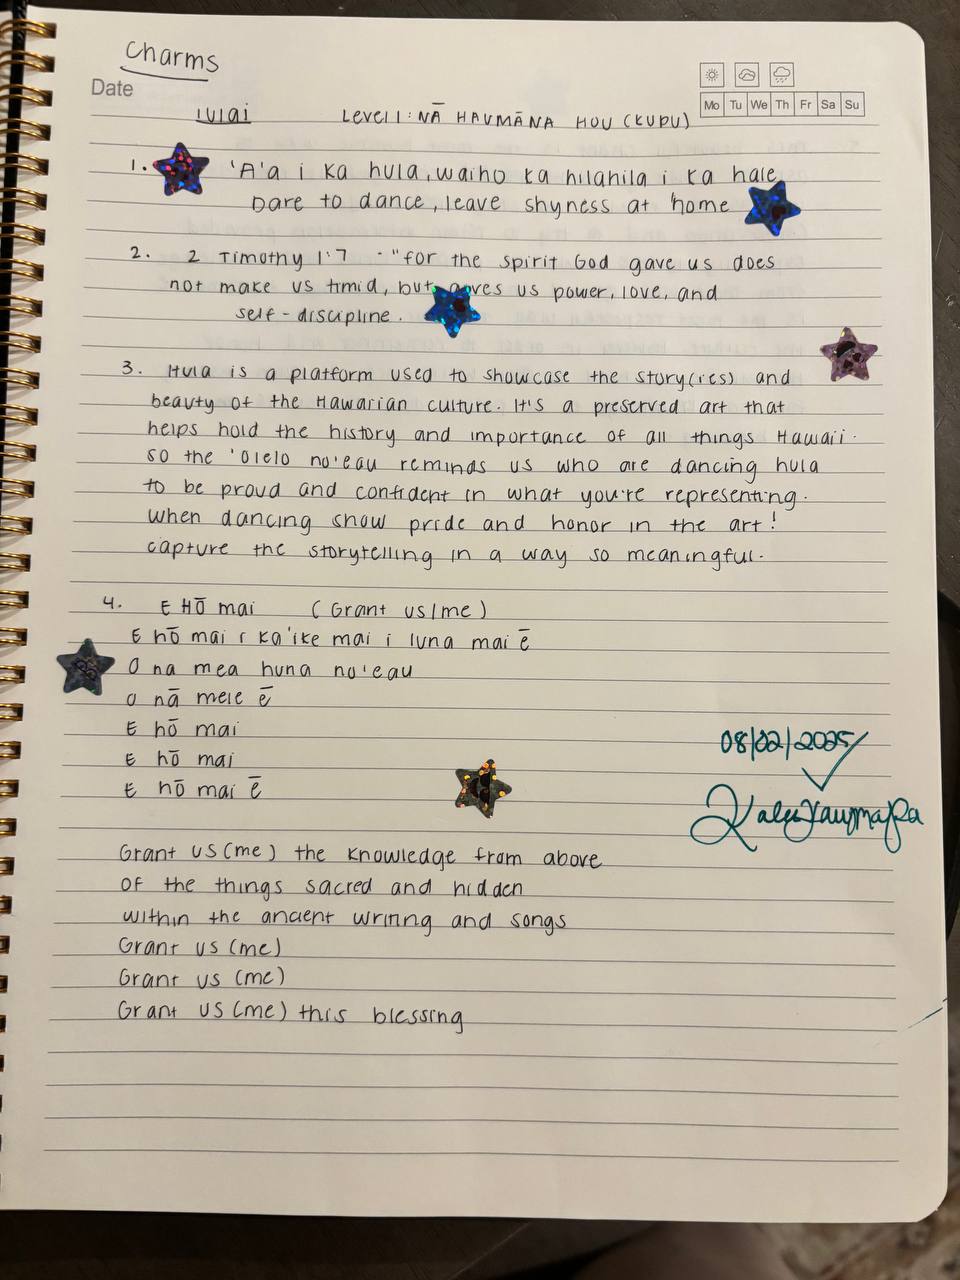 Charms
Date
Mo Tu We Th Fr Sa Su
Iulai Level 1: NĀ HAUMĀNA HOU (KUPU)
1. 'A'a i ka hula, waiho ka hilahila i ka hale
Dare to dance, leave shyness at home
2. 2 Timothy 1:7 - "for the spirit God gave us does
not make us timid, but gives us power, love, and
self-discipline.
3. Hula is a platform used to showcase the story(ies) and
beauty of the Hawaiian culture. It's a preserved art that
helps hold the history and importance of all things Hawaii.
so the 'olelo no'eau reminds us who are dancing hula
to be proud and confident in what you're representing.
When dancing show pride and honor in the art!
capture the storytelling in a way so meaningful.
4. E HŌ mai (Grant us/me)
E hō mai i ka'ike mai i luna mai ē
O na mea huna no'eau
O nā mele ē
E hō mai
E hō mai
E hō mai ē
08/02/2025
Grant us (me) the knowledge from above
OF the things sacred and hidden
within the ancient writing and songs
Grant us (me)
Grant us (me)
Grant us (me) this blessing